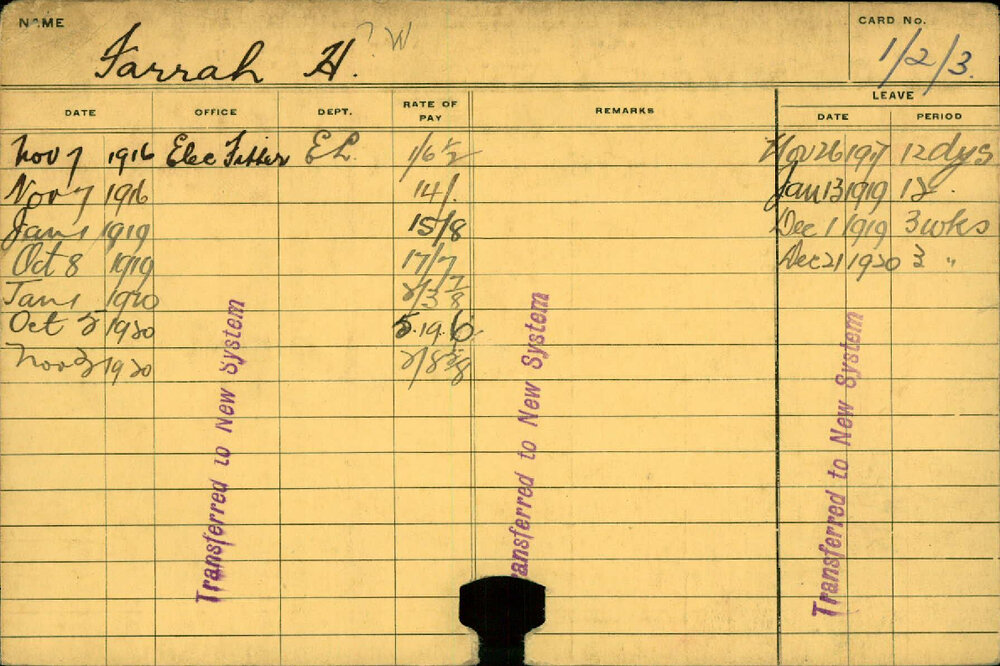 NAME
Farrah H. W
CARD No.
1/2/3.
DATE OFFICE DEPT. RATE OF PAY REMARKS LEAVE DATE PERIOD
Nov 7 1916 Elec Fitter EL. 1/6 ½ Nov 26 1917 12dys
Nov 7 1916 14/. Jan 13 1919 12 "
Jan 1 1919 15/8 Dec 1 1919 3 wks
Oct 8 1919 17/7 Dec 21 1920 3 "
Jan 1 1920 2/3 7/8
Oct 5 1920 5.19.6
Nov 3 1920 2/8 5/8
Transferred to New System
Transferred to New System
Transferred to New System